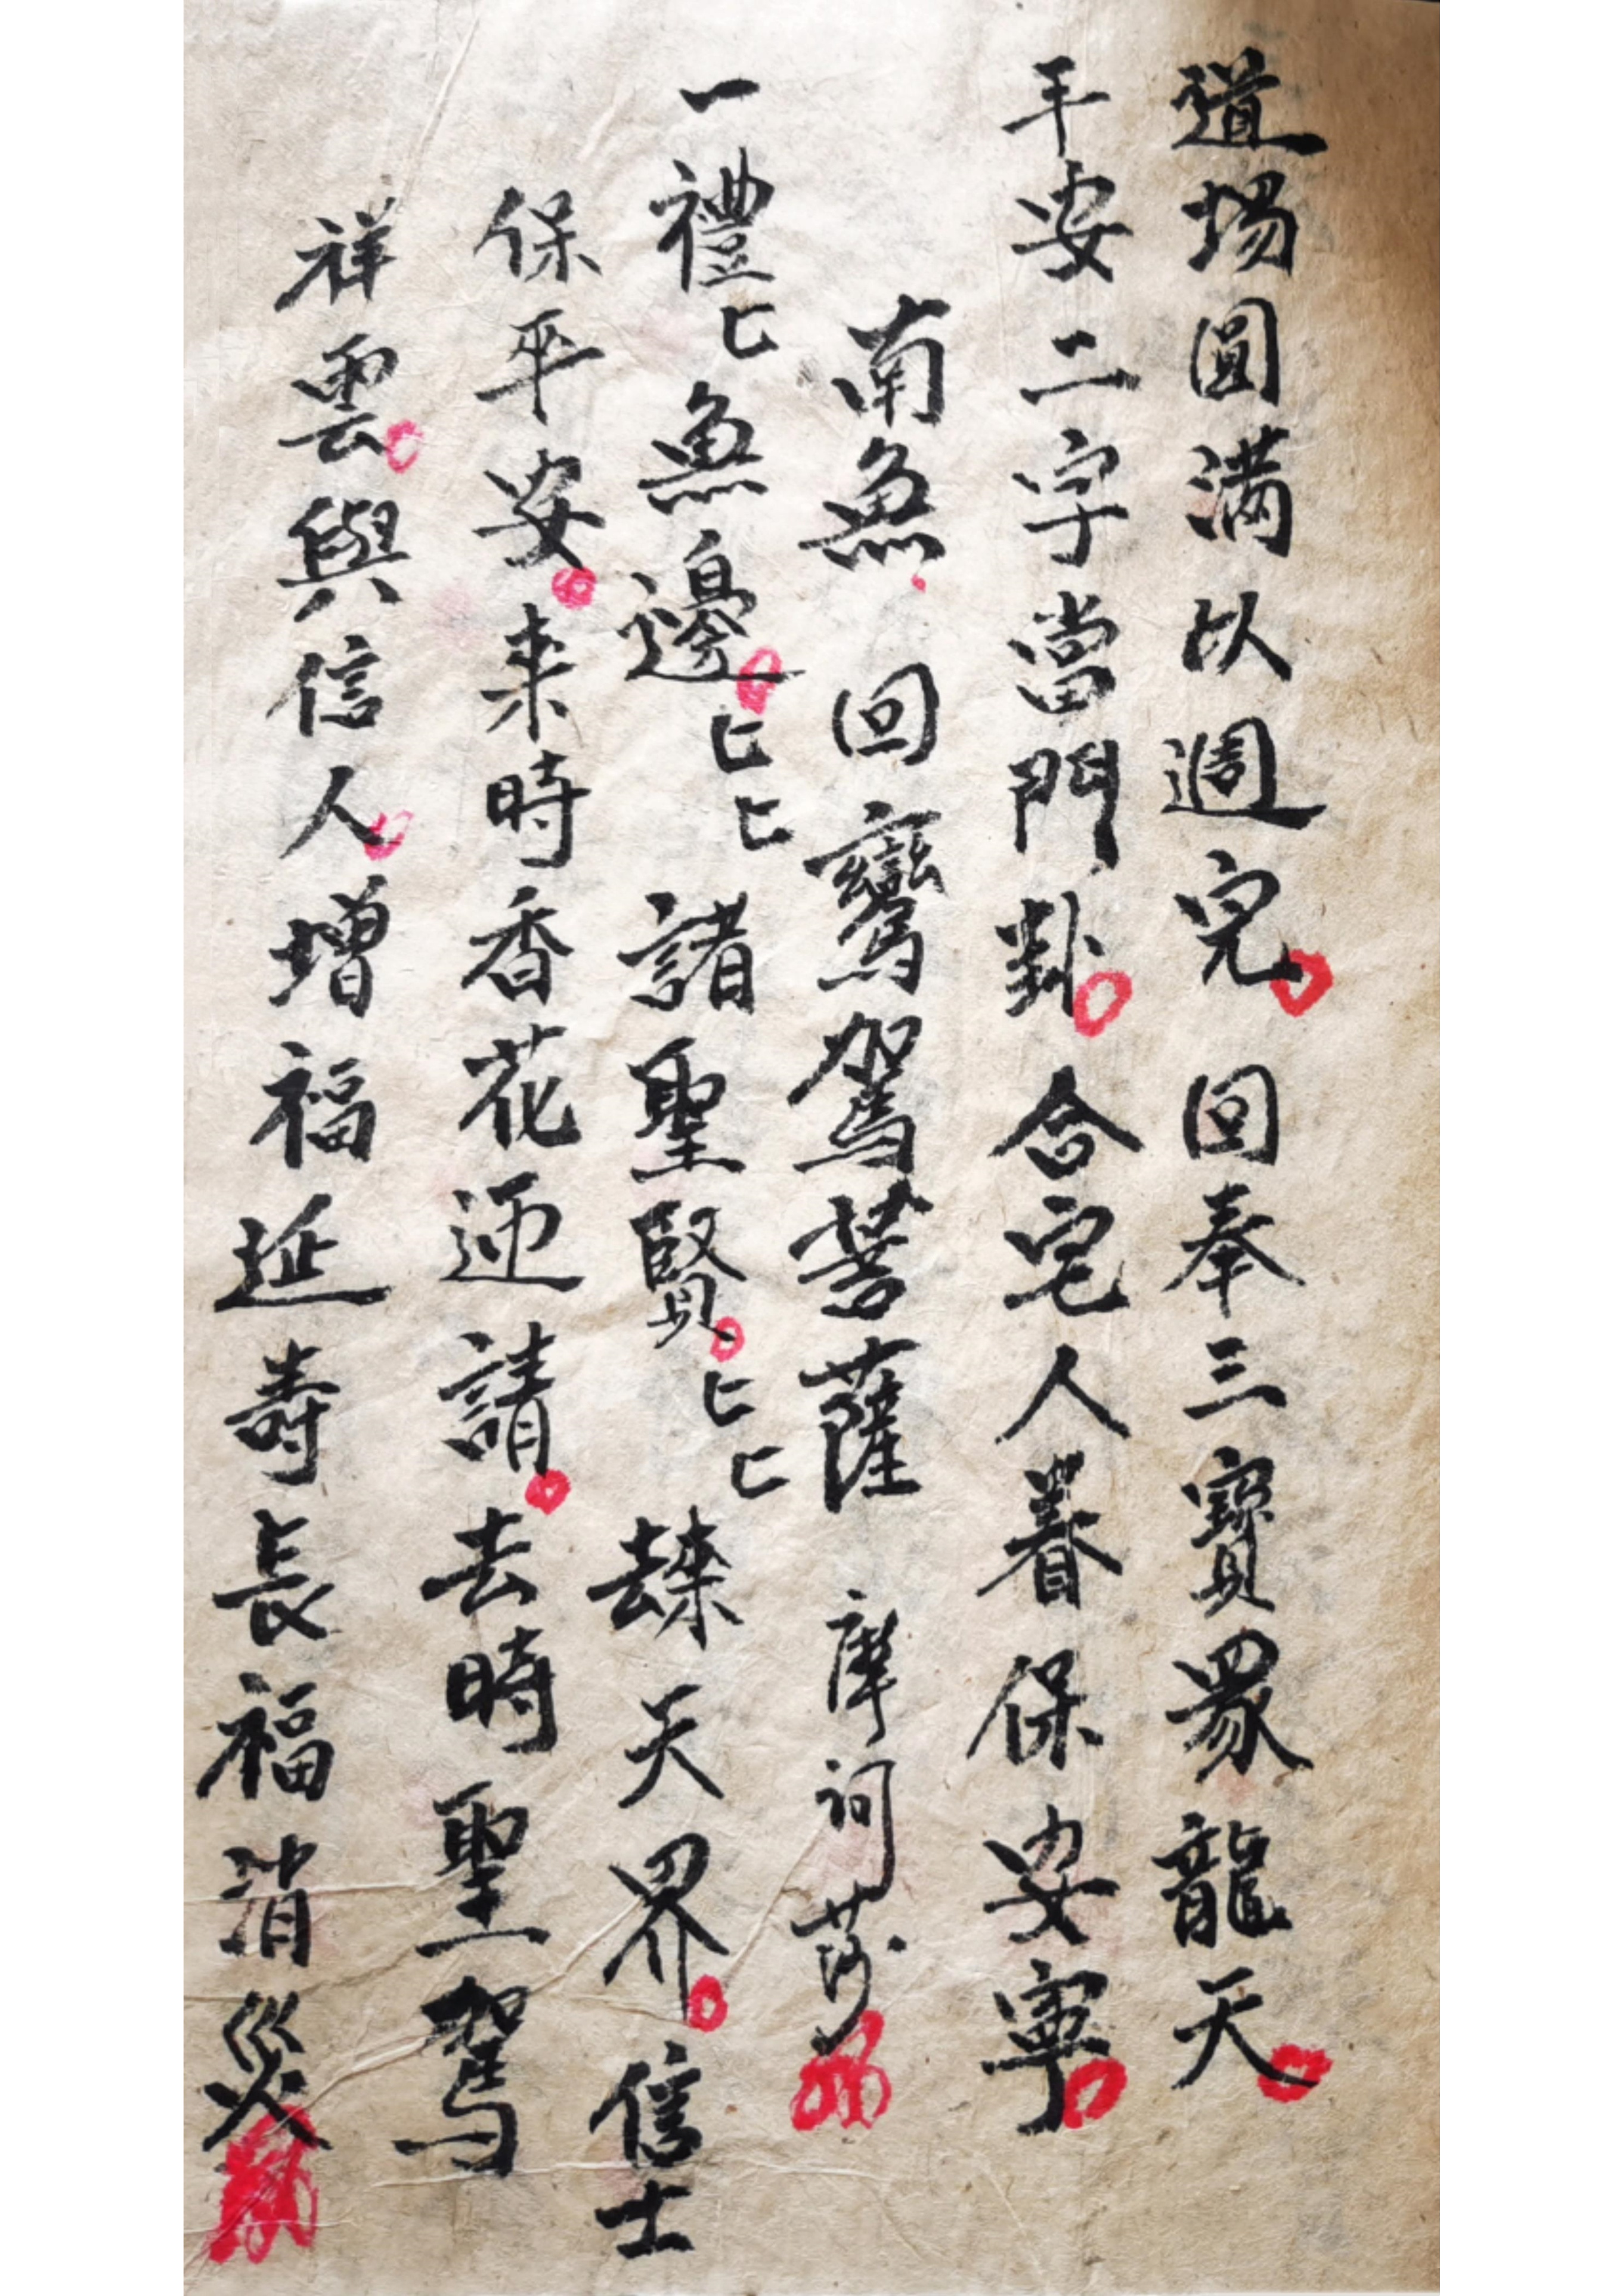 道場圓滿以週完回奉三寶眾龍天
平安二字當門卦合宅人眷保安寧
南無回鸞駕菩薩摩訶薩
一禮匕無邊匕匕諸聖賢匕匕歸天界信士
保平安來時香花迎請去時聖駕
祥雲與信人增福延壽長福消災